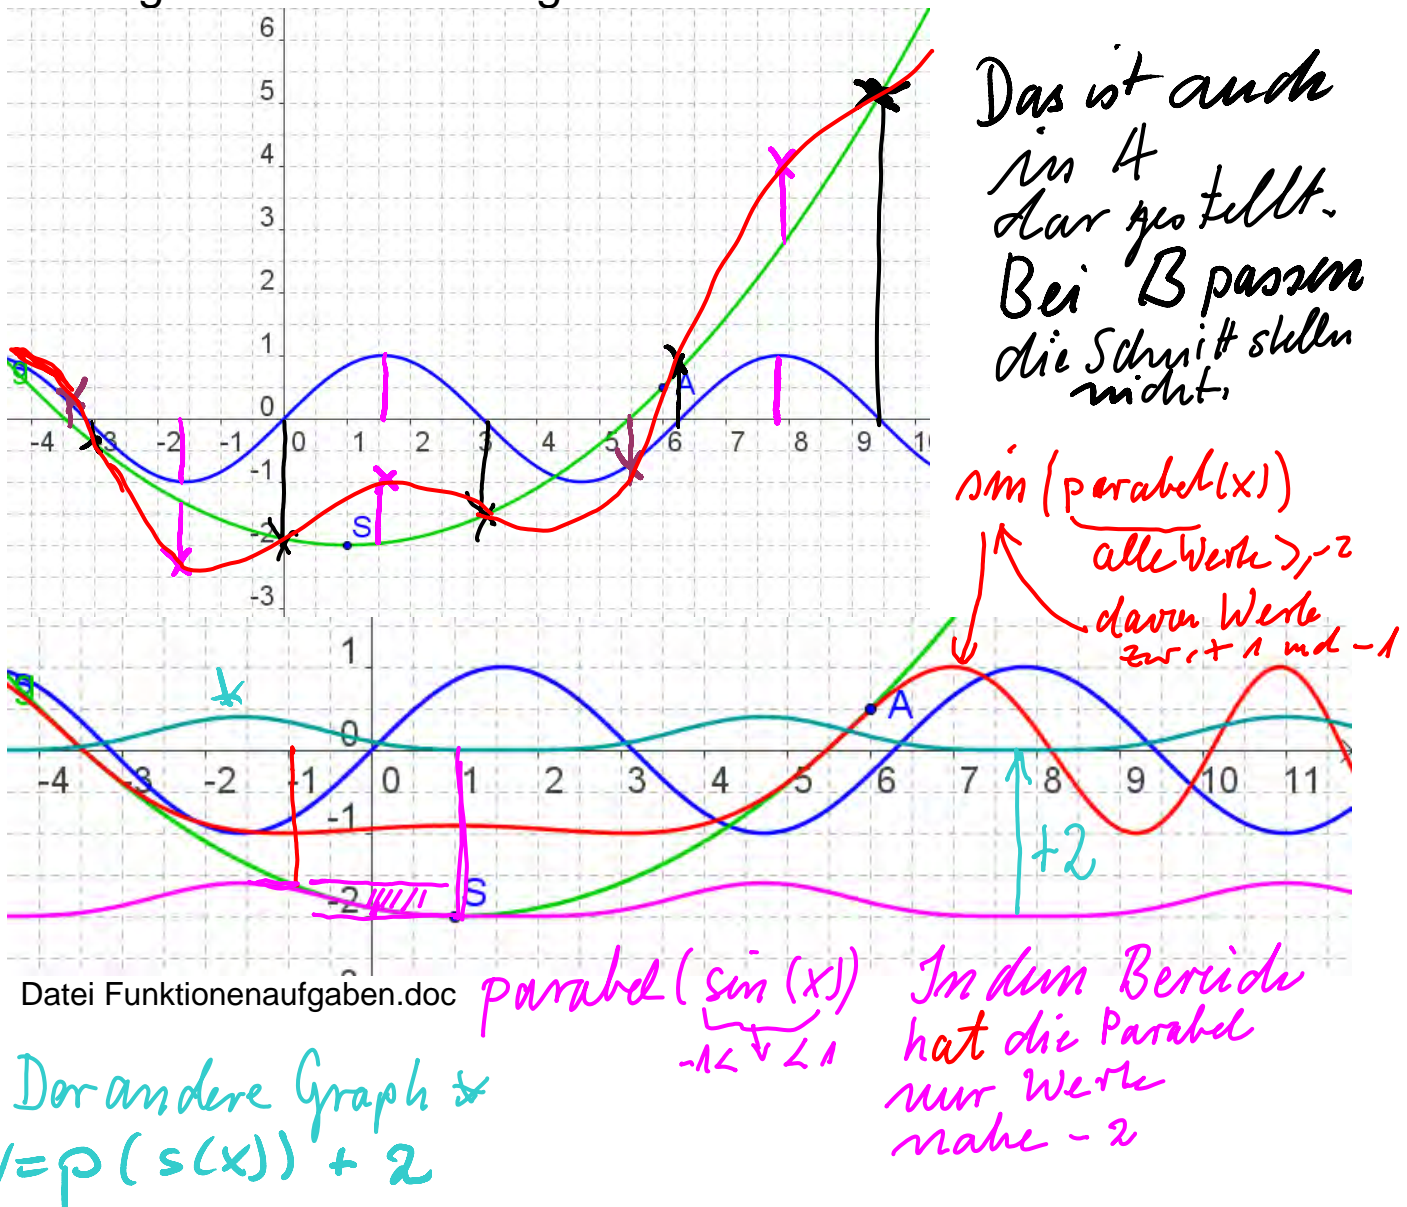 6
5
4
3
2
1
0
-4 -3 -2 -1 0 1 2 3 4 5 6 7 8 9 10
-1
-2
-3
g
S
A
Das ist auch
in A
dargestellt.
Bei B passen
die Schnittstellen
nicht.
sin(parabel(x))
alle Werte ≥ -2
davon Werte
zw. + 1 und - 1
1
0
-4 -3 -2 -1 0 1 2 3 4 5 6 7 8 9 10 11
-1
-2
g
*
A
S
+2
Datei Funktionenaufgaben.doc
parabel(sin(x))
-1< <1
In dem Bereich
hat die Parabel
nur Werte
nahe - 2
Der andere Graph *
y=p(s(x)) + 2